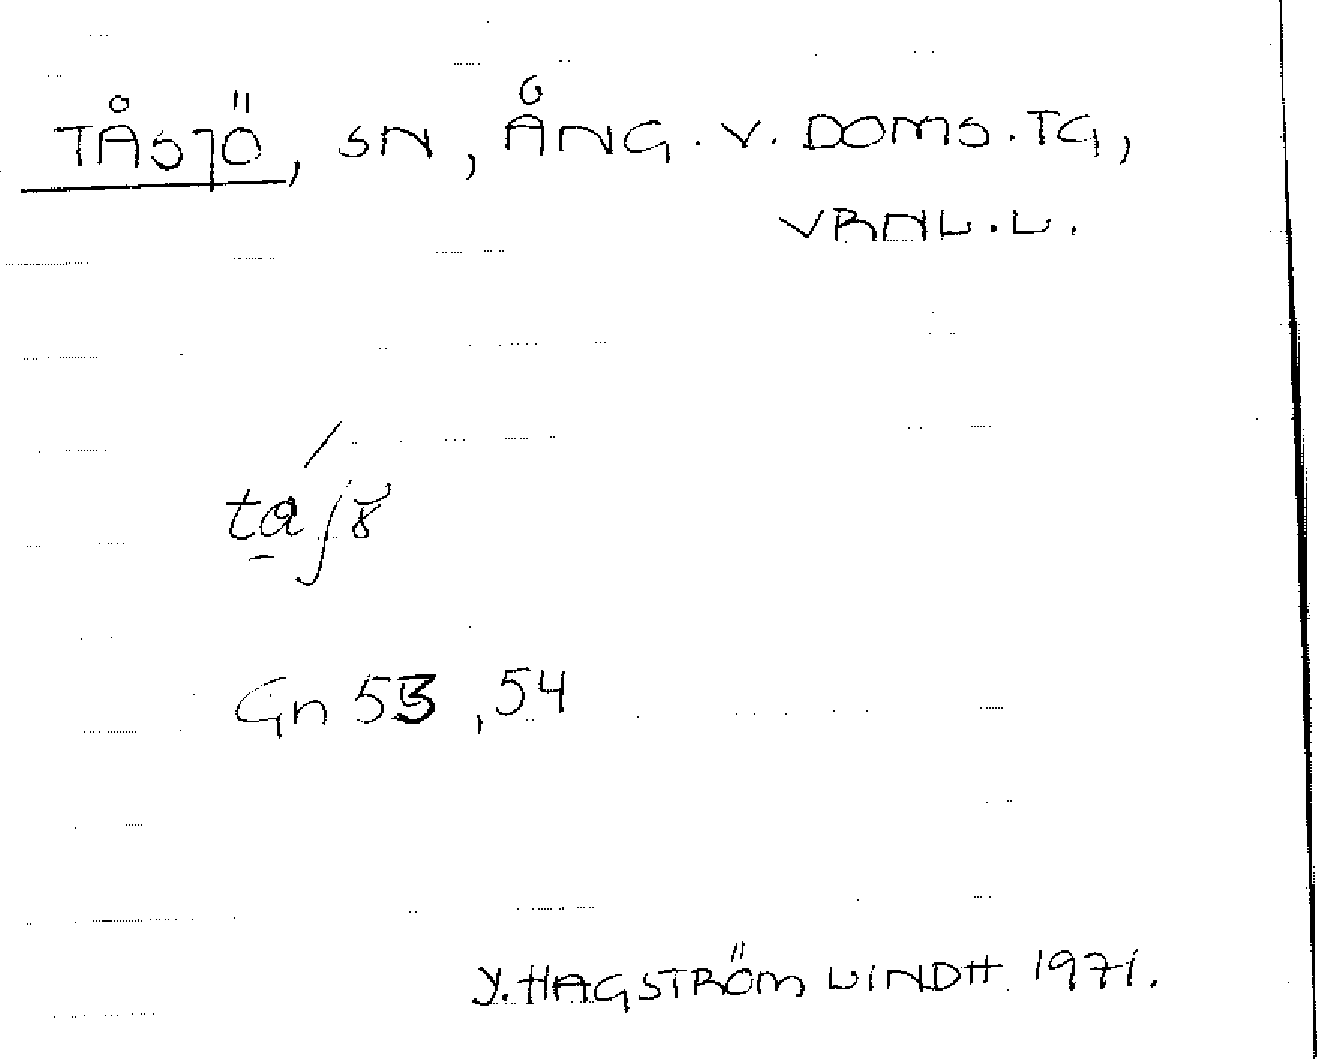 TÅSJÖ, SN, ÅNG. V. DOMS. TG,
VRNL. L.
Gn 53, 54
Y. HAGSTRÖM LINDH 1971.